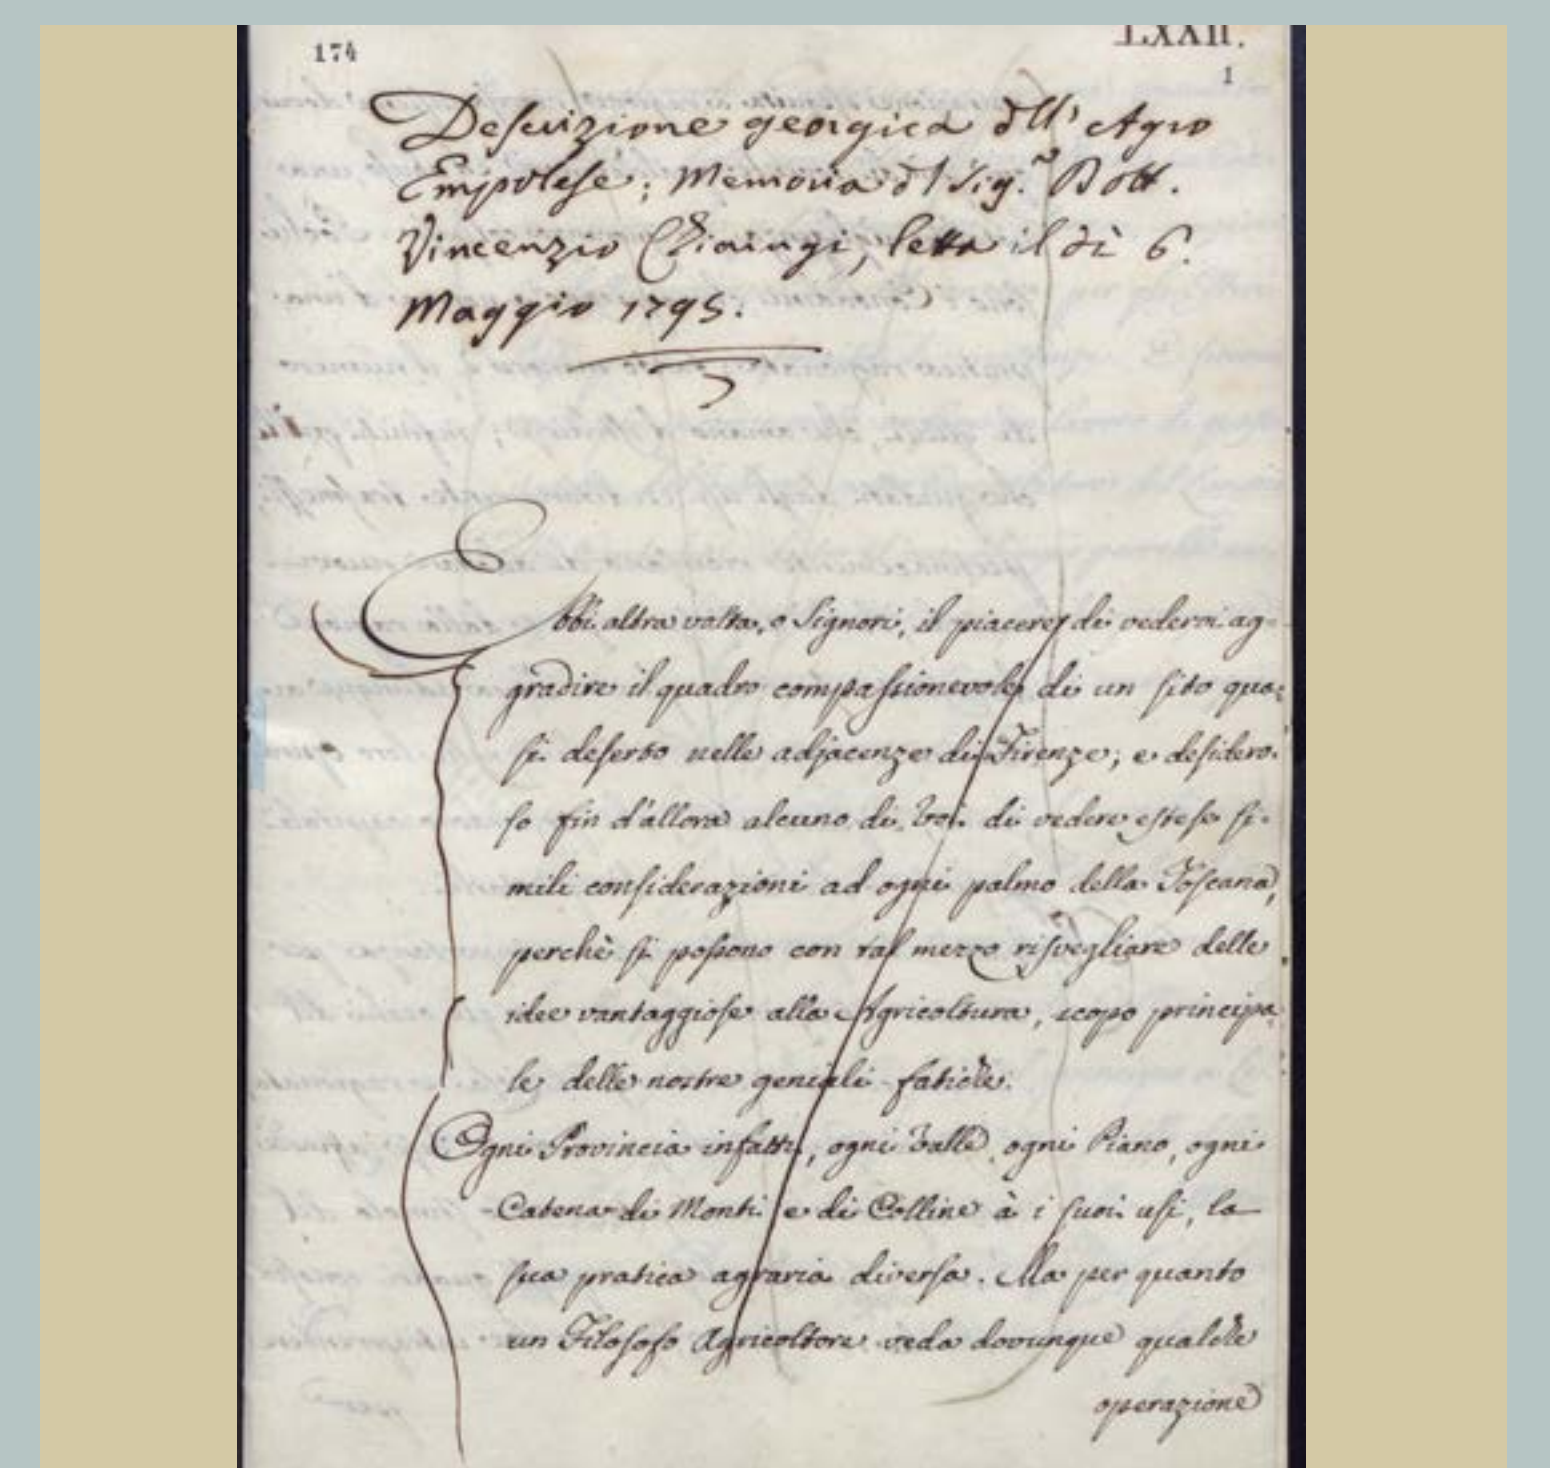 174
LXXII.
1
Descrizione georgica dll' Agro
Empolese; Memoria dl Sig.r Dott.
Vincenzio Chiarugi, letta il dì 6.
Maggio 1795.
Ebbi altra volta, o Signori, il piacere di vedervi ag=
gradire il quadro compassionevole di un sito qua=
si deserto nelle adjacenze di Firenze; e desidero=
so fin d'allora alcuno di Voi di vedere estese si=
mili considerazioni ad ogni palmo della Toscana,
perchè si possono con tal mezzo risvegliare delle
idee vantaggiose alla Agricoltura, scopo principa=
le delle nostre geniali fatiche.
Ogni Provincia infatti, ogni Valle, ogni Piano, ogni
Catena di Monti e di Colline à i suoi usi, la
sua pratica agraria diversa. Ma per quanto
un Filosofo Agricoltore veda dovunque qualche
operazione